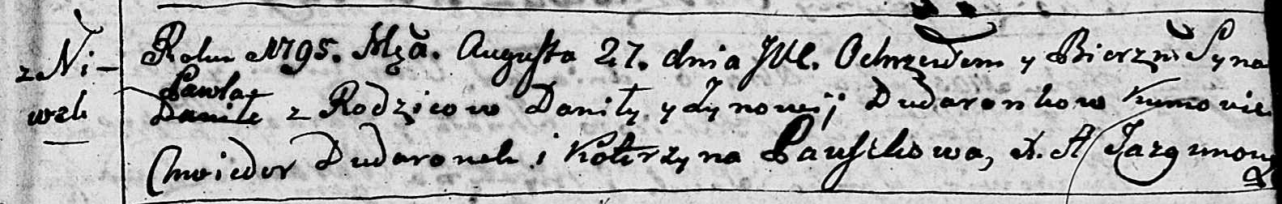 z Ni-
wek
Roku 1795. Mca. Augusta 27. dnia JWC. Ochrzciłem y Bierzm Syna
Pawła
Daniłę z Rodzicow Daniły y Zynowij Dudaronkow Kumowie
Chwiedor Dudaronek i Katerzyna Pauszkowa, X. A Jazgunow